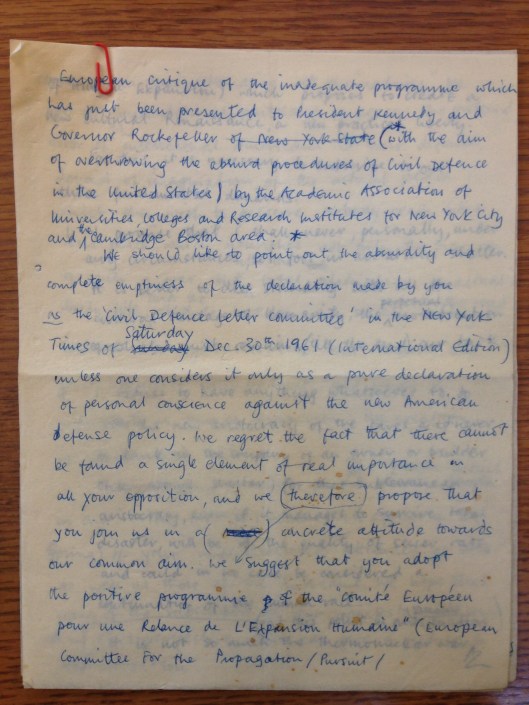 European critique of the inadequate programme which
has just been presented to President Kennedy and
Governor Rockefeller of New York State (with the aim
of overthrowing the absurd procedures of Civil Defence
in the United States) by the Academic Association of
Universities Colleges and Research Institutes for New York City
and the Cambridge Boston area. *
We should like to point out the absurdity and
complete emptiness of the declaration made by you
as the 'Civil Defence Letter Committee' in the New York
Saturday
Times of Dec. 30th 1961 (International Edition)
unless one considers it only as a pure declaration
of personal conscience against the new American
defense policy. We regret the fact that there cannot
be found a single element of real importance in
all your opposition, and we therefore propose that
you join us in a concrete attitude towards
our common aim. We suggest that you adopt
the positive programme of the "Comité Européen
pour une Relance de L'Expansion Humaine" (European
Committee for the Propagation/Pursuit/
2